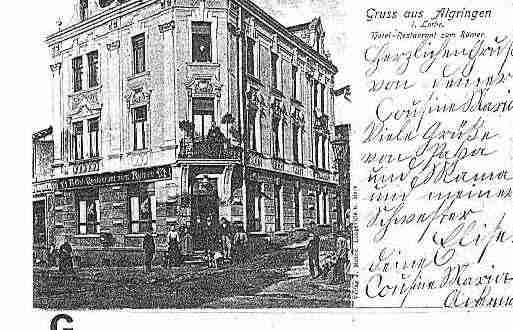 Gruss aus Algringen
i. Lothr.
Hotel-Restaurant zum Römer.
Herzlichen Gruß
von deiner
Cousine Maria
Viele Grüße
von Papa
und Mama
und meiner
Schwester
Elise
deine
Cousine Maria
Hotel-Restaurant zum Römer
G